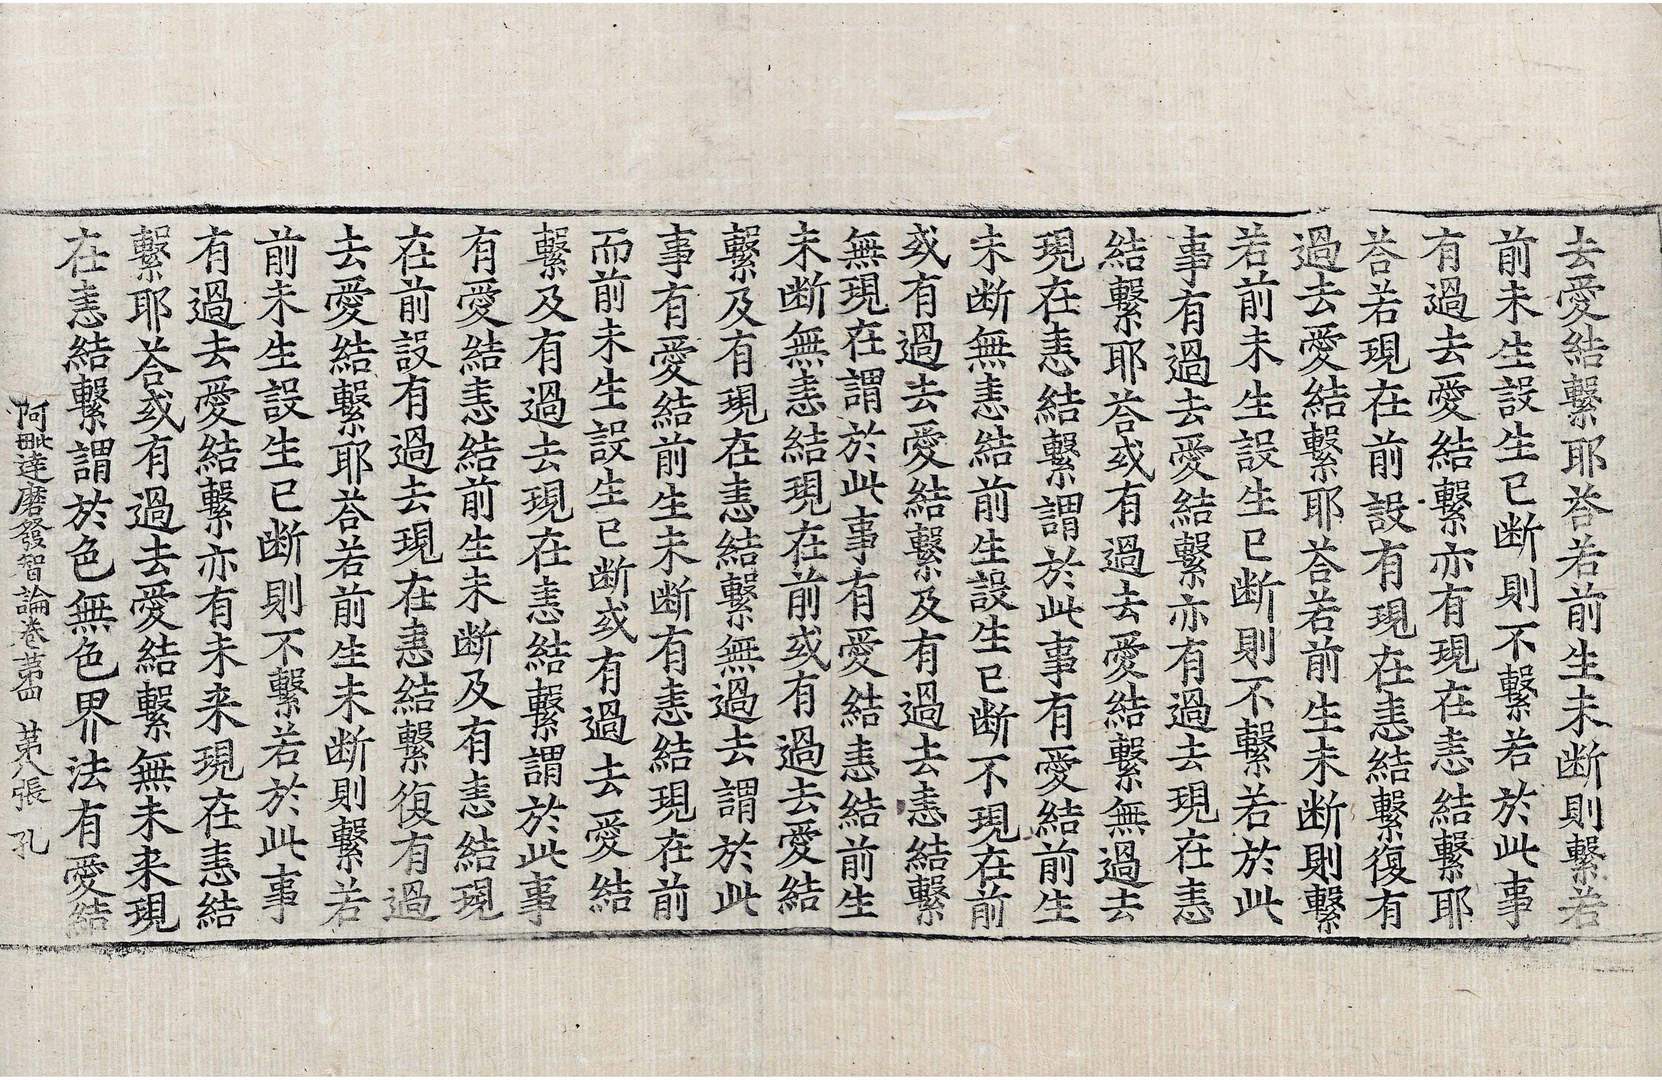 去愛結繫耶荅若前生未断則繫若
前未生設生已断則不繫若於此事
有過去愛結繫亦有現在恚結繫耶
荅若現在前設有現在恚結繫復有
過去愛結繫耶荅若前生未断則繫
若前未生設生已断則不繫若於此
事有過去愛結繫亦有過去現在恚
結繫耶荅或有過去愛結繫無過去
現在恚結繫謂於此事有愛結前生
未断無恚結前生設生已断不現在前
或有過去愛結繫及有過去恚結繫
無現在謂於此事有愛結恚結前生
未断無恚結現在前或有過去愛結
繫及有現在恚結繫無過去謂於此
事有愛結前生未断有恚結現在前
而前未生設生已断或有過去愛結
繫及有過去現在恚結繫謂於此事
有愛結恚結前生未断及有恚結現
在前設有過去現在恚結繫復有過
去愛結繫耶荅若前生未断則繫若
前未生設生已断則不繫若於此事
有過去愛結繫亦有未来現在恚結
繫耶荅或有過去愛結繫無未来現
在恚結繫謂於色無色界法有愛結
阿毗達磨發智論卷苐四 苐八張 孔